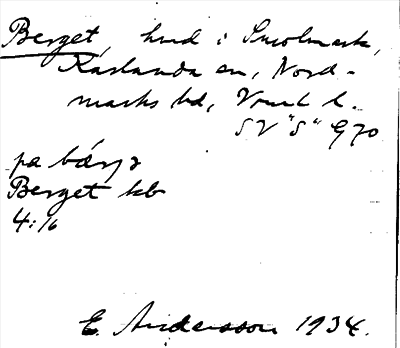 Berget, hmd i Smolmark,
Karlanda sn, Nord-
marks hd, Vrml l.
SV "S" G70
pa bærj2
Berget kb
4:16
E. Andersson 1934.